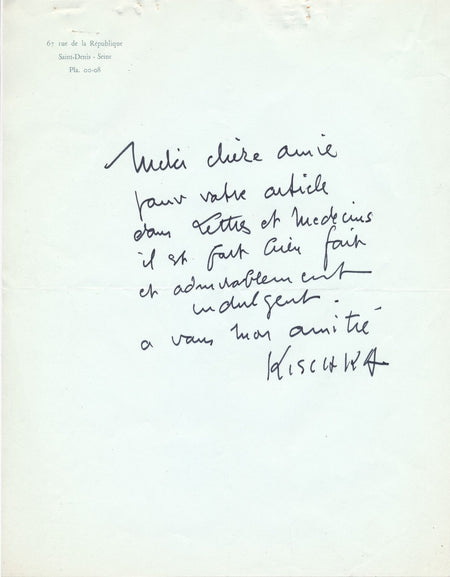 67 rue de la République
Saint-Denis - Seine
Pla. 00-08
Merci chère amie
pour votre article
dans Lettres et Medecins
il est fort bien fait
et admirablement
indulgent.
a vous mon amitié
KISCHKA